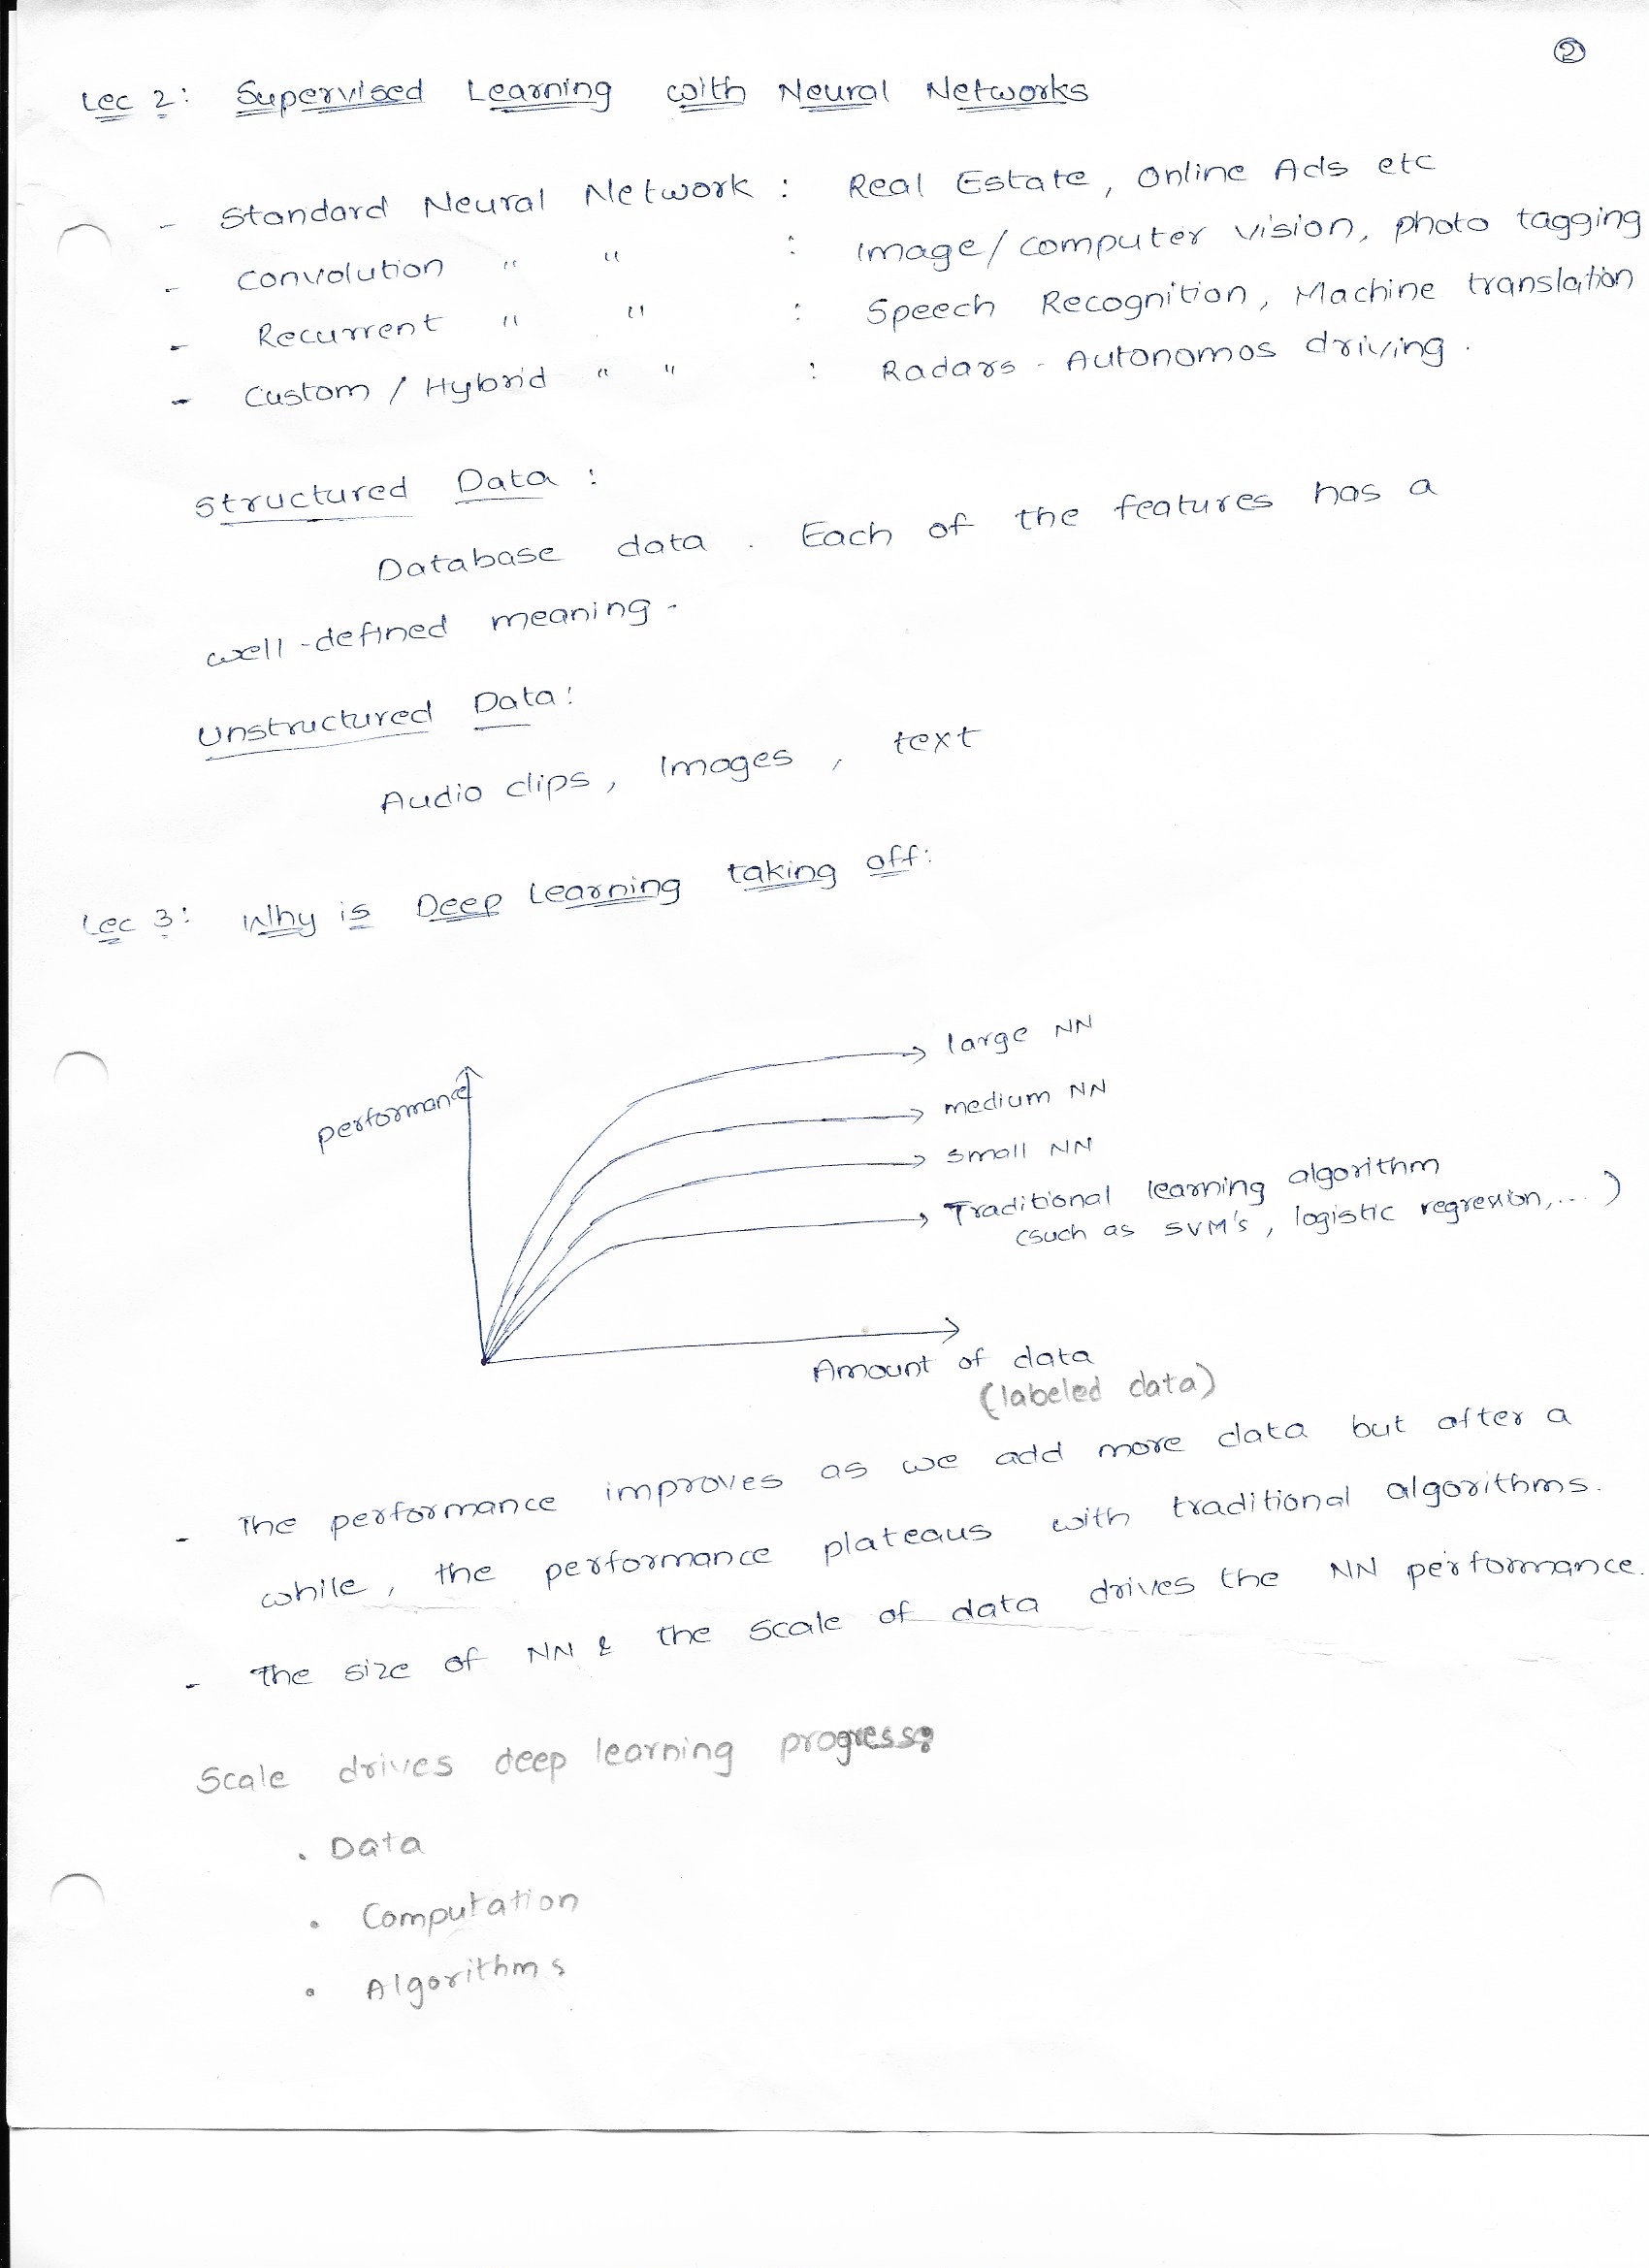 ②
Lec 2: Supervised Learning with Neural Networks
- Standard Neural Network : Real Estate, Online Ads etc
- Convolution " " : Image/computer vision, photo tagging
- Recurrent " " : Speech Recognition, Machine translation
- Custom / Hybrid " " : Radars - Autonomos driving.
Structured Data :
Database data . Each of the features has a
well-defined meaning.
Unstructured Data:
Audio clips, Images, text
Lec 3: Why is Deep Learning taking off:
large NN
performance
medium NN
small NN
Traditional learning algorithm
(such as SVM's, logistic regression,...)
Amount of data
(labeled data)
- The performance improves as we add more data but after a
while, the performance plateaus with traditional algorithms.
- The size of NN & the scale of data drives the NN performance.
Scale drives deep learning progress:
. Data
. Computation
. Algorithms